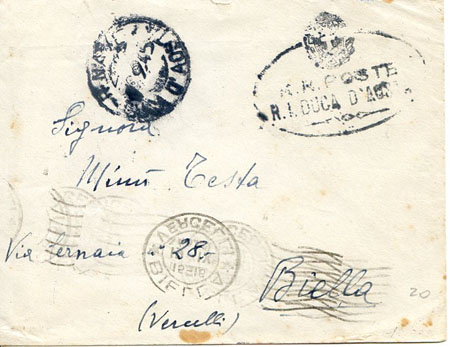 R.R. POSTE
R.I. DUCA D'AOSTA
Signora
Minù Testa
Via Cernaia 28
Biella
(Vercelli)
VERCELLI
BIELLA
20